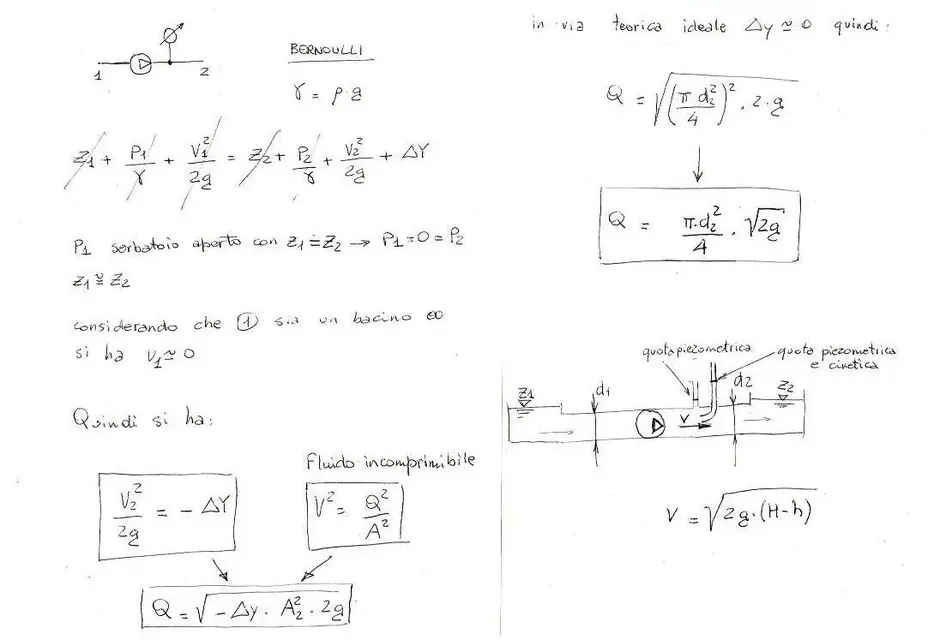 BERNOULLI
γ = ρ·g
1 2
Z1 + P1/γ + V1²/2g = Z2 + P2/γ + V2²/2g + ΔY
P1 serbatoio aperto con Z1 ≐ Z2 → P1=0=P2
Z1 ≅ Z2
considerando che ① sia un bacino ∞
si ha V1 ≃ 0
Quindi si ha:
Fluido incomprimibile
V2²/2g = - ΔY
V² = Q²/A²
Q = √(-Δy · A2² · 2g)
in via teorica ideale Δy ≃ 0 quindi:
Q = √((π d2²/4)² · 2·g)
Q = π·d2²/4 · √2g
quota piezometrica
quota piezometrica
e cinetica
Z1 d1 V d2 Z2
V = √2g·(H-h)